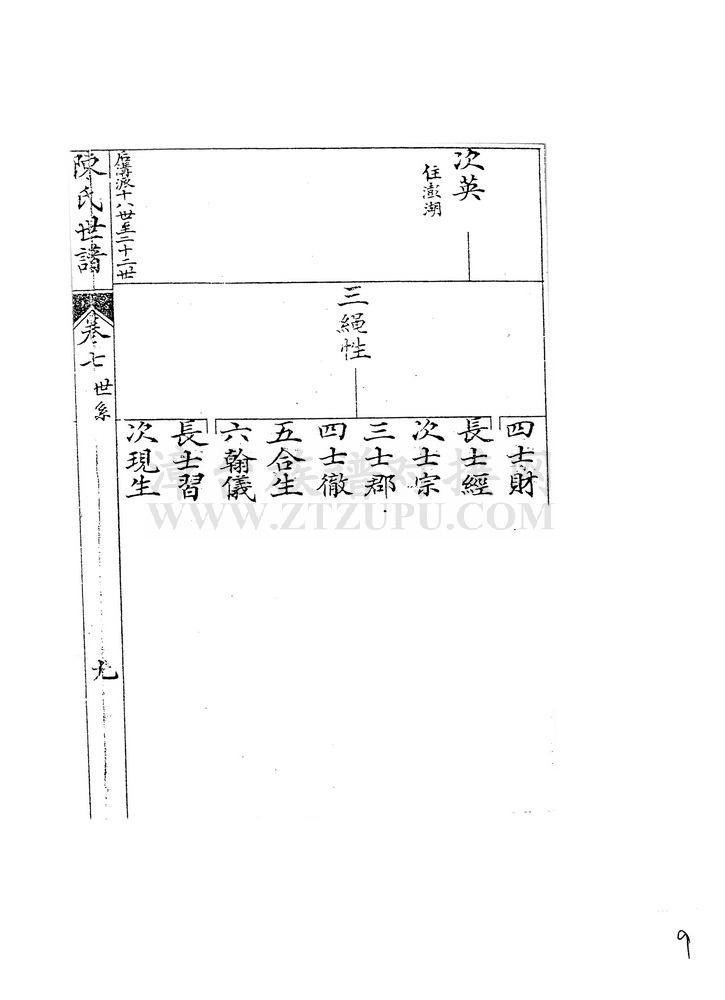 次英
住澎湖
三繩性
四士財
長士經
次士宗
三士郡
四士徹
五合生
六翰儀
長士習
次現生
后溝派十八世至二十二世
陳氏世譜
卷七
世系
九
漳台族谱对接网
WWW.ZTZUPU.COM
9